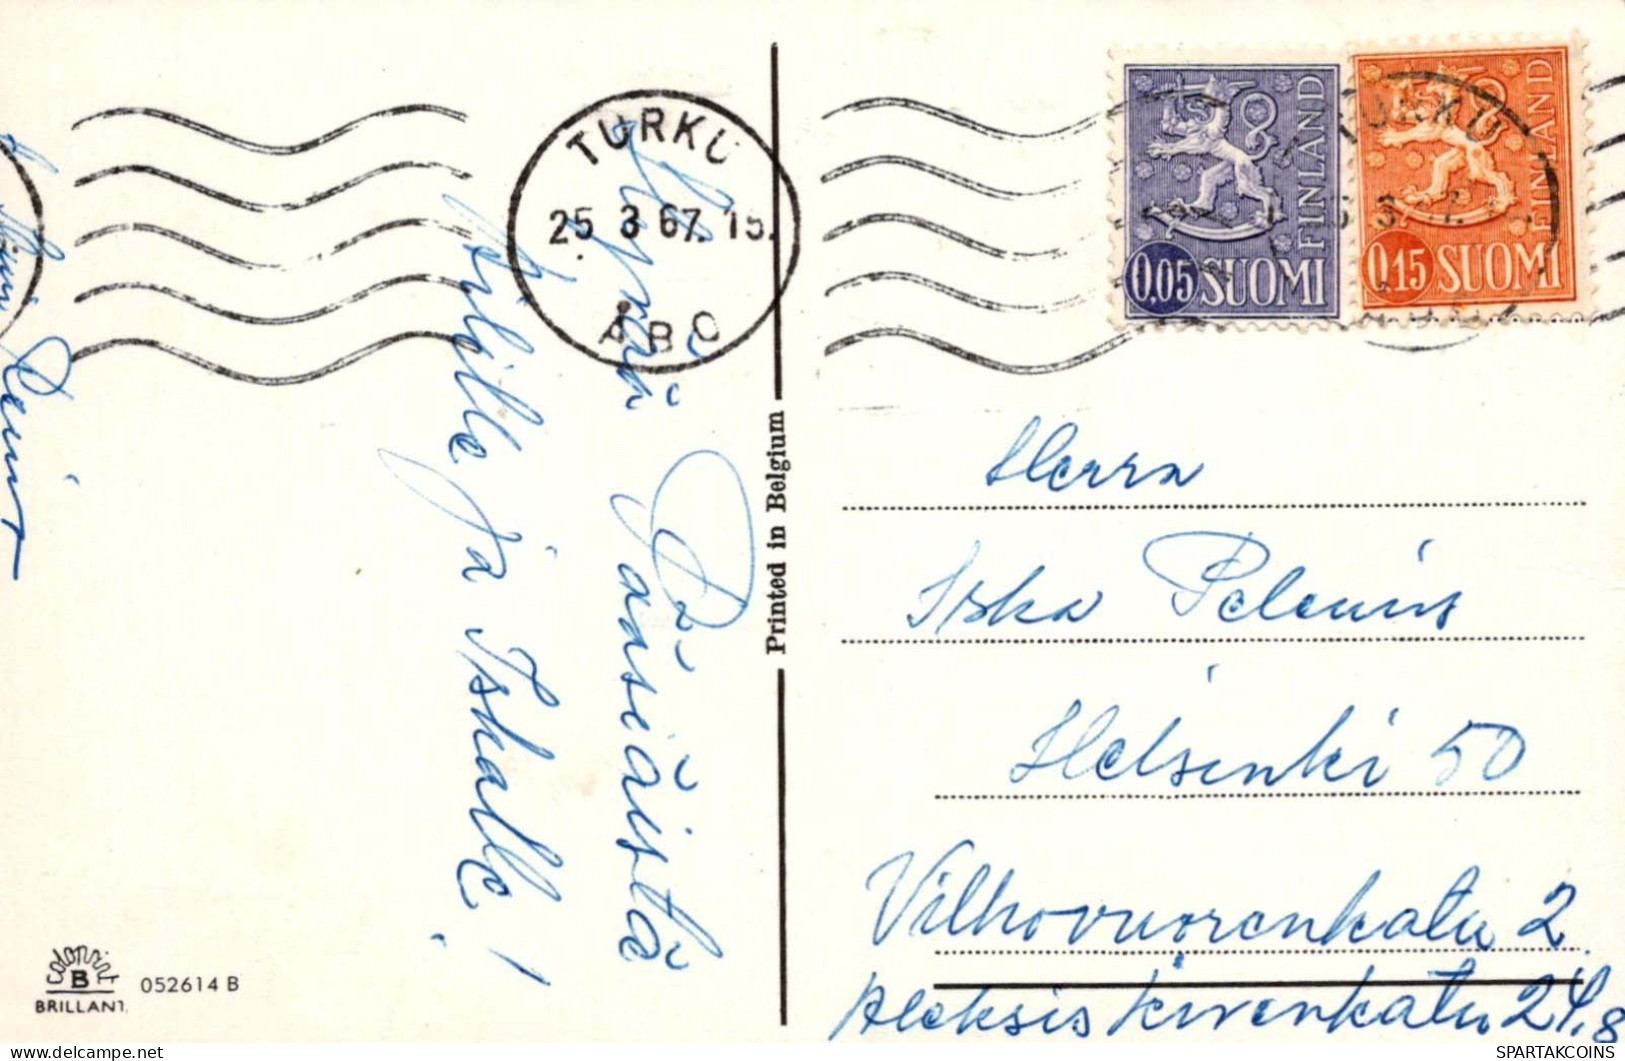 TURKU
25 3 67. 15.
ÅBO
Hyvää Pääsiäistä
Äijille ja Iskalle!
Printed in Belgium
FINLAND
0,05 SUOMI
TURKU
FINLAND
0,15 SUOMI
Herra
Iska Pelenius
Helsinki 50
Vilhovuorenkatu 2
Aleksis Kivenkatu 24,8
colorprint
B
BRILLANT.
052614 B
SPARTAKCOINS